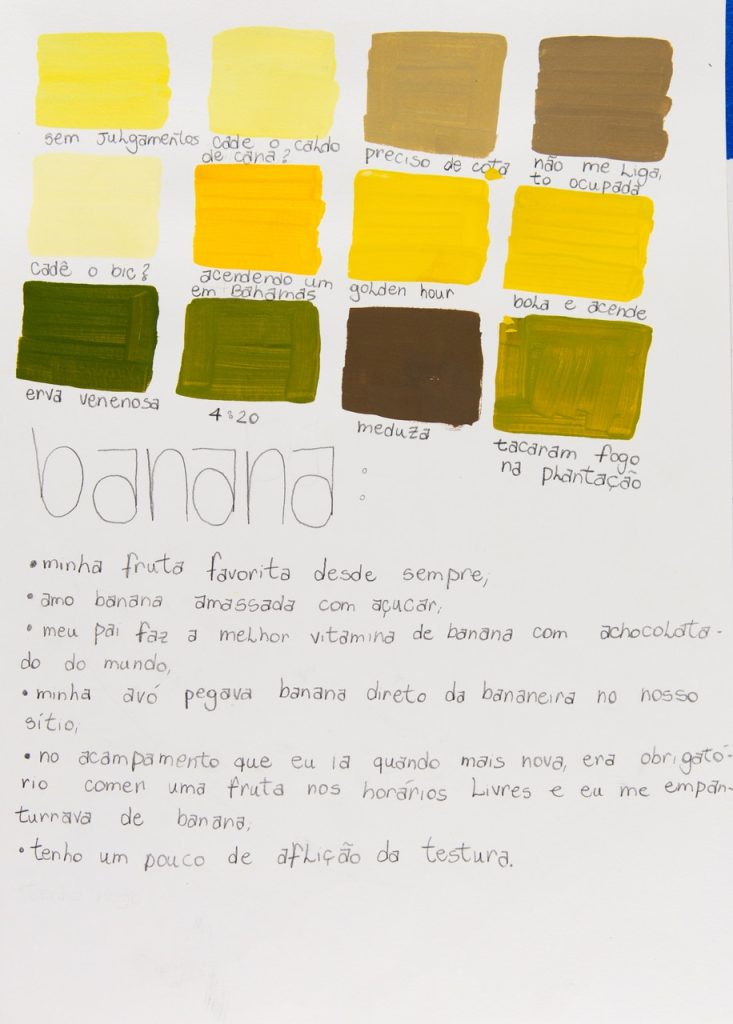 sem julhgamentos
cade o cahdo
de cana?
preciso de cota
não me higa,
to ocupada
cadê o bic?
acendendo um
em Bahamas
golden hour
bola e acende
erva venenosa
4:20
meduza
tacaram fogo
na phantação
banana:
• minha fruta favorita desde sempre;
• amo banana amassada com açucar;
• meu pai faz a melhor vitamina de banana com achocolata-
do do mundo;
• minha avó pegava banana direto da bananeira no nosso
sítio;
• no acampamento que eu ia quando mais nova, era obrigató-
rio comer uma fruta nos horários livres e eu me empan-
turrava de banana;
• tenho um pouco de aflição da testura.